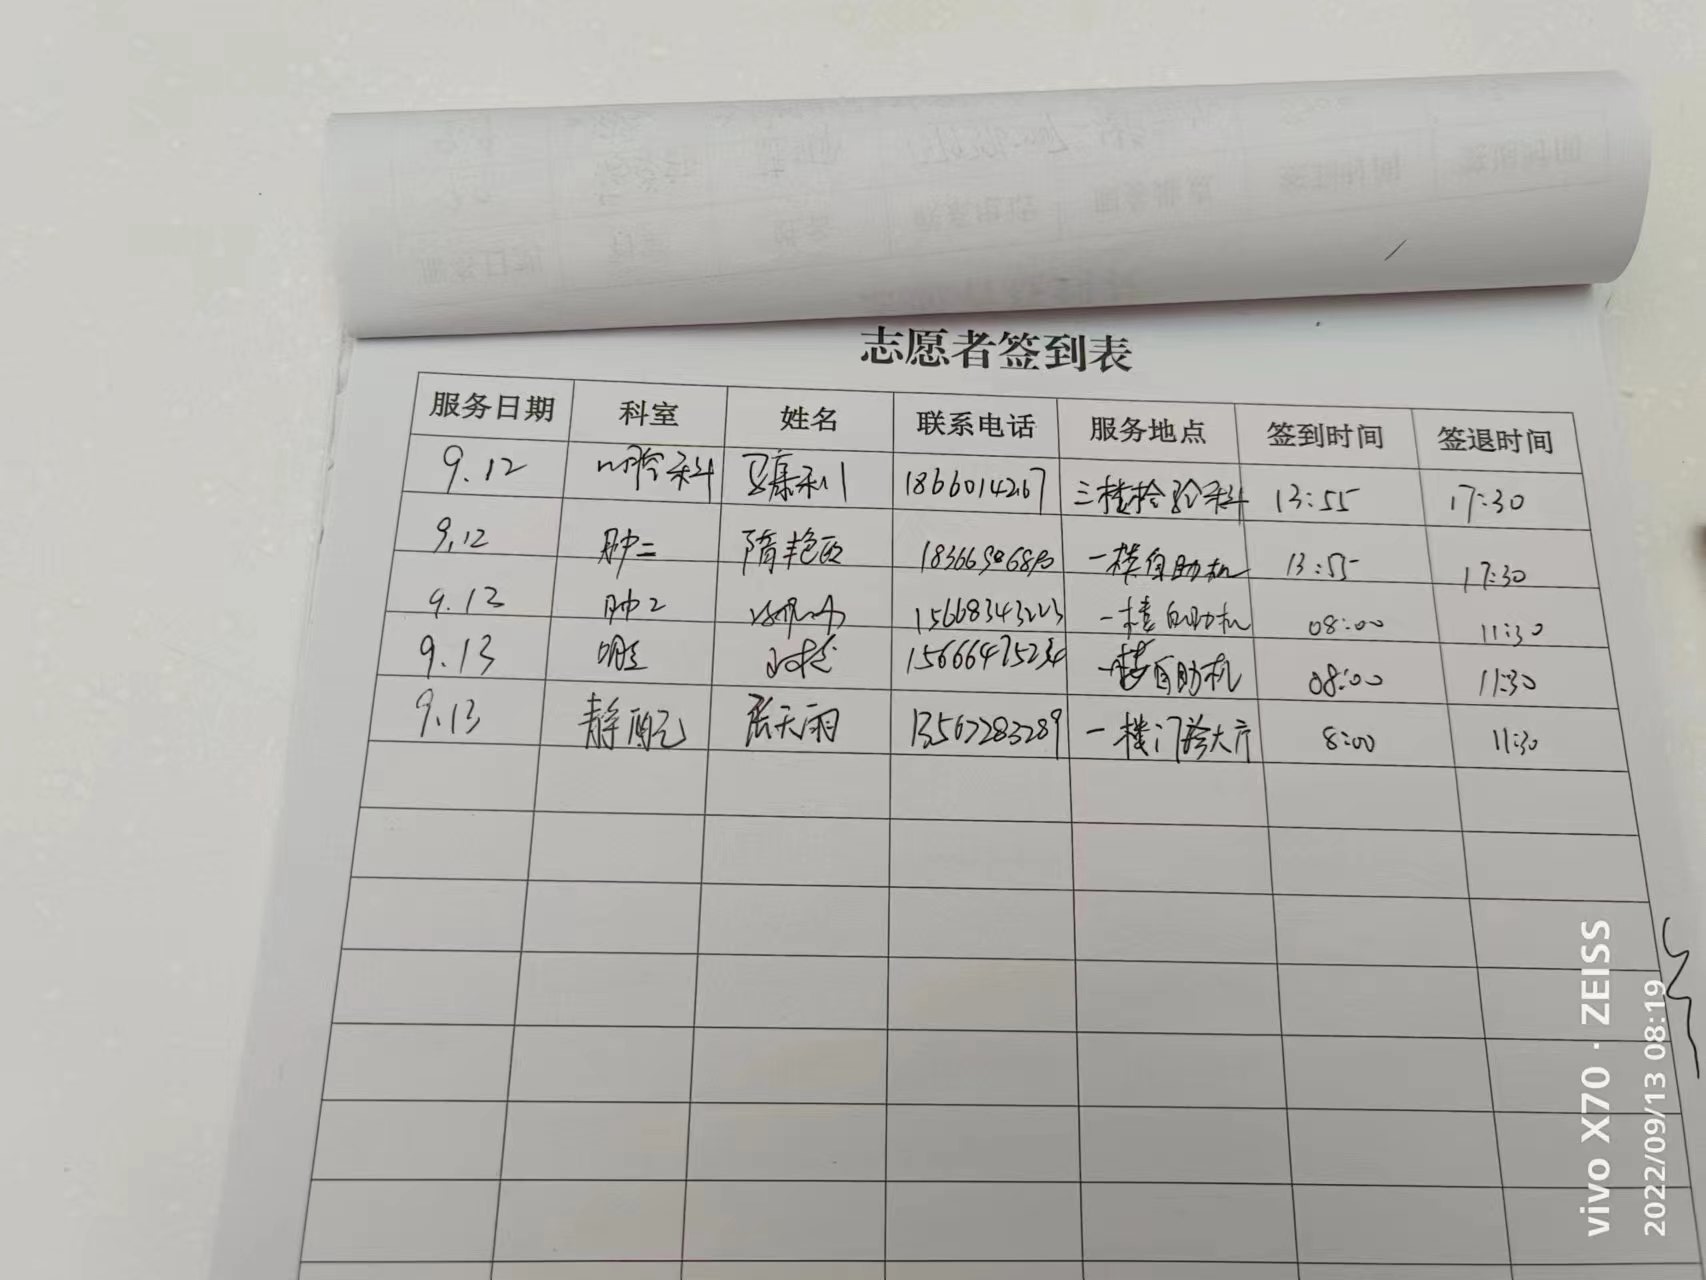 志愿者签到表
服务日期 科室 姓名 联系电话 服务地点 签到时间 签退时间
9.12 口腔科 18660142167 三楼检验科 13:55 17:30
9.12 肿二 隋艳 一楼自助机 13:55 17:30
9.13 肿2 15668343223 一楼自助机 08:00 11:30
9.13 15666475234 一楼自助机 08:00 11:30
9.13 静配 张天雨 13562283289 一楼门诊大厅 8:00 11:30
vivo X70 · ZEISS
2022/09/13 08:19